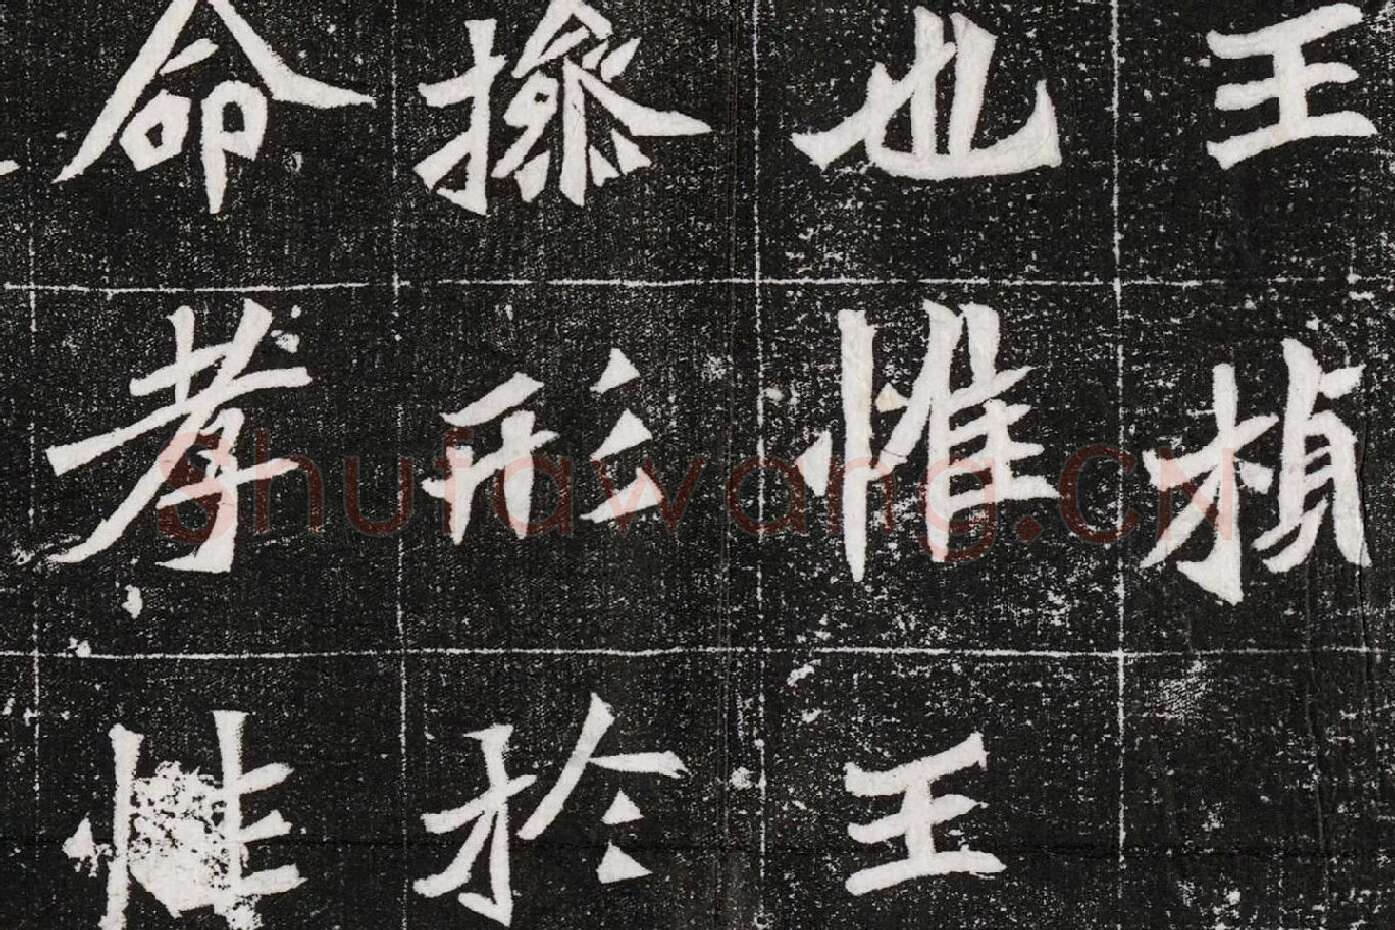 王楨
也惟王
操形於
命孝性
Shufawang.CN